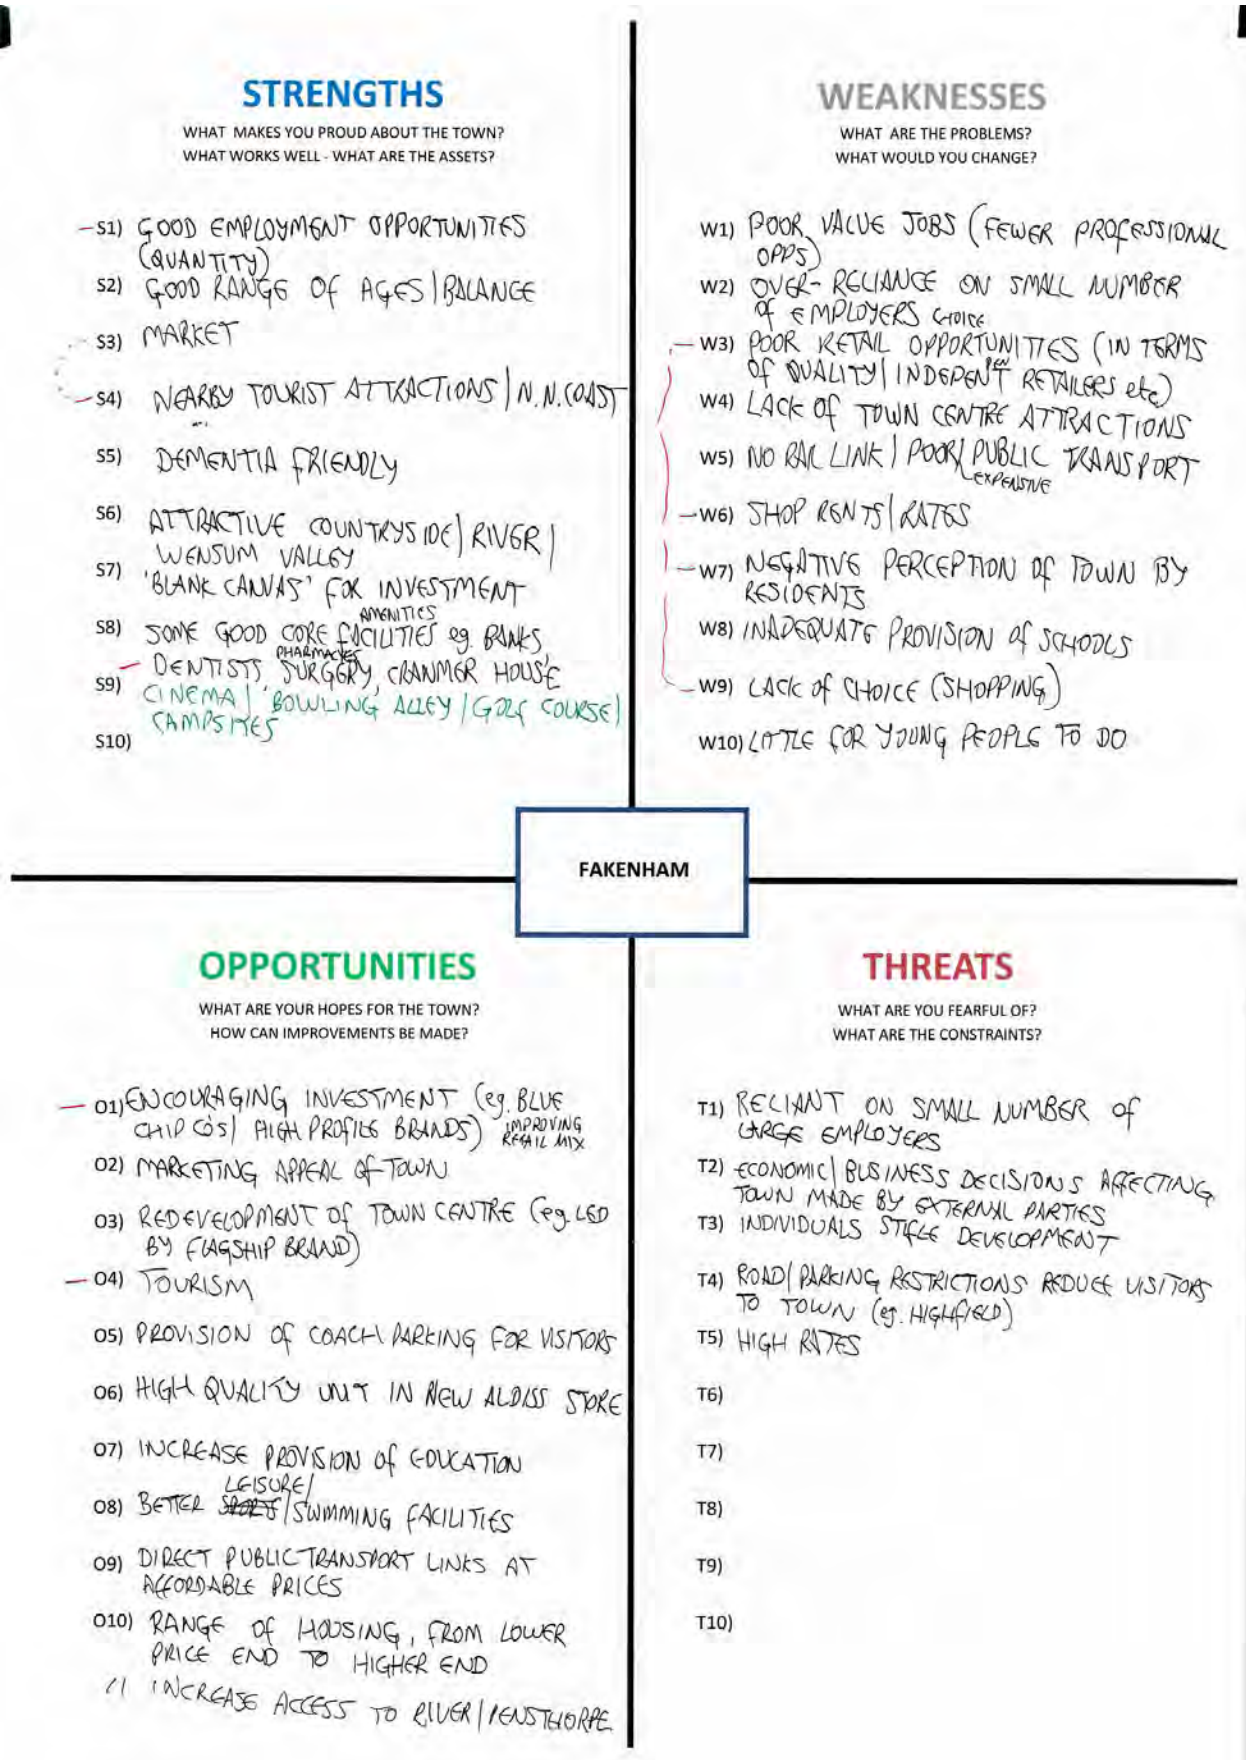 STRENGTHS
WHAT MAKES YOU PROUD ABOUT THE TOWN?
WHAT WORKS WELL - WHAT ARE THE ASSETS?
S1) GOOD EMPLOYMENT OPPORTUNITIES
(QUANTITY)
S2) GOOD RANGE OF AGES/BALANCE
S3) MARKET
S4) NEARBY TOURIST ATTRACTIONS/N.N.COAST
S5) DEMENTIA FRIENDLY
S6) ATTRACTIVE COUNTRYSIDE/RIVER/
WENSUM VALLEY
S7) 'BLANK CANVAS' FOR INVESTMENT
AMENITIES
S8) SOME GOOD CORE FACILITIES eg. BANKS,
PHARMACIES
DENTISTS, SURGERY, CRANMER HOUSE
S9) CINEMA/BOWLING ALLEY/GOLF COURSE/
CAMPSITES
S10)
WEAKNESSES
WHAT ARE THE PROBLEMS?
WHAT WOULD YOU CHANGE?
W1) POOR VALUE JOBS (FEWER PROFESSIONAL
OPPS)
W2) OVER-RELIANCE ON SMALL NUMBER
OF EMPLOYERS
CHOICE
W3) POOR RETAIL OPPORTUNITIES (IN TERMS
OF QUALITY/INDEPEN'T RETAILERS etc)
W4) LACK OF TOWN CENTRE ATTRACTIONS
W5) NO RAIL LINK/POOR/PUBLIC TRANSPORT
EXPENSIVE
W6) SHOP RENTS/RATES
W7) NEGATIVE PERCEPTION OF TOWN BY
RESIDENTS
W8) INADEQUATE PROVISION OF SCHOOLS
W9) LACK OF CHOICE (SHOPPING)
W10) LITTLE FOR YOUNG PEOPLE TO DO
FAKENHAM
OPPORTUNITIES
WHAT ARE YOUR HOPES FOR THE TOWN?
HOW CAN IMPROVEMENTS BE MADE?
O1) ENCOURAGING INVESTMENT (eg. BLUE
CHIP COS/HIGH PROFILE BRANDS) IMPROVING
RETAIL MIX
O2) MARKETING APPEAL OF TOWN
O3) REDEVELOPMENT OF TOWN CENTRE (eg. LED
BY FLAGSHIP BRAND)
O4) TOURISM
O5) PROVISION OF COACH PARKING FOR VISITORS
O6) HIGH QUALITY UNIT IN NEW ALDISS STORE
O7) INCREASE PROVISION OF EDUCATION
LEISURE/
O8) BETTER SPORTS/SWIMMING FACILITIES
O9) DIRECT PUBLIC TRANSPORT LINKS AT
AFFORDABLE PRICES
O10) RANGE OF HOUSING, FROM LOWER
PRICE END TO HIGHER END
11 INCREASE ACCESS TO RIVER/PENSTHORPE
THREATS
WHAT ARE YOU FEARFUL OF?
WHAT ARE THE CONSTRAINTS?
T1) RELIANT ON SMALL NUMBER OF
LARGE EMPLOYERS
T2) ECONOMIC/BUSINESS DECISIONS AFFECTING
TOWN MADE BY EXTERNAL PARTIES
T3) INDIVIDUALS STIFLE DEVELOPMENT
T4) ROAD/PARKING RESTRICTIONS REDUCE VISITORS
TO TOWN (eg. HIGHFIELD)
T5) HIGH RATES
T6)
T7)
T8)
T9)
T10)